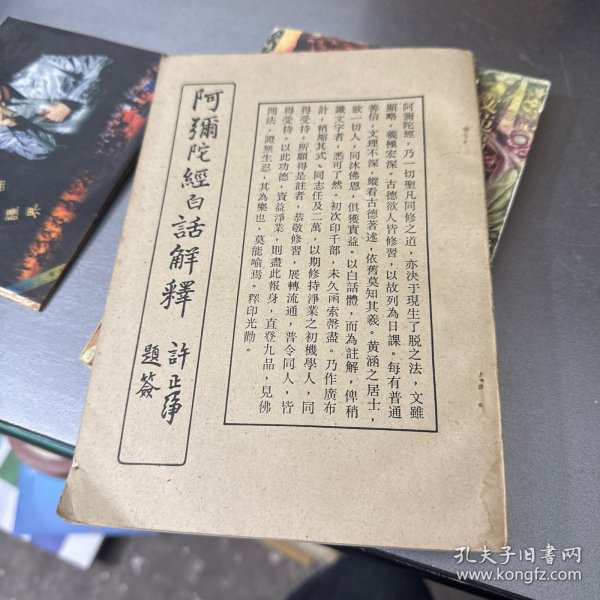 阿彌陀經白話解釋
許止淨
題簽
阿彌陀經，乃一切聖凡同修之道，亦決于現生了脫之法，文雖
顯略，義極宏深。古德欲人皆修習，以故列為日課。每有普通
善信，文理不深，縱看古德著述，依舊莫知其義。黃涵之居士，
欲一切人，同沐佛恩，俱獲實益。以白話體，而為註解，俾稍
識文字者，悉可了然。初次印千部，未久函索罄盡。乃作廣布
計，稍縮其式。同志任及二萬，以期修持淨業之初機學人，同
得受持。所願得是註者，恭敬修習，展轉流通，普令同人，皆
得受持。以此功德，資益淨業，則盡此報身，直登九品，見佛
聞法，證無生忍，其為樂也，莫能喻焉。釋印光勸。
孔夫子旧书网
www.kongfz.com